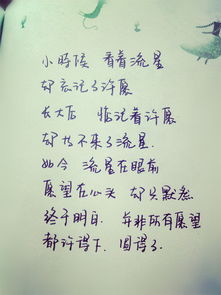 小时候 看着流星
却忘记了许愿
长大后 惦记着许愿
却也不来了流星
如今 流星在眼前
愿望在心头 却只默默
终于明白 并非所有愿望
都许得下 圆得了